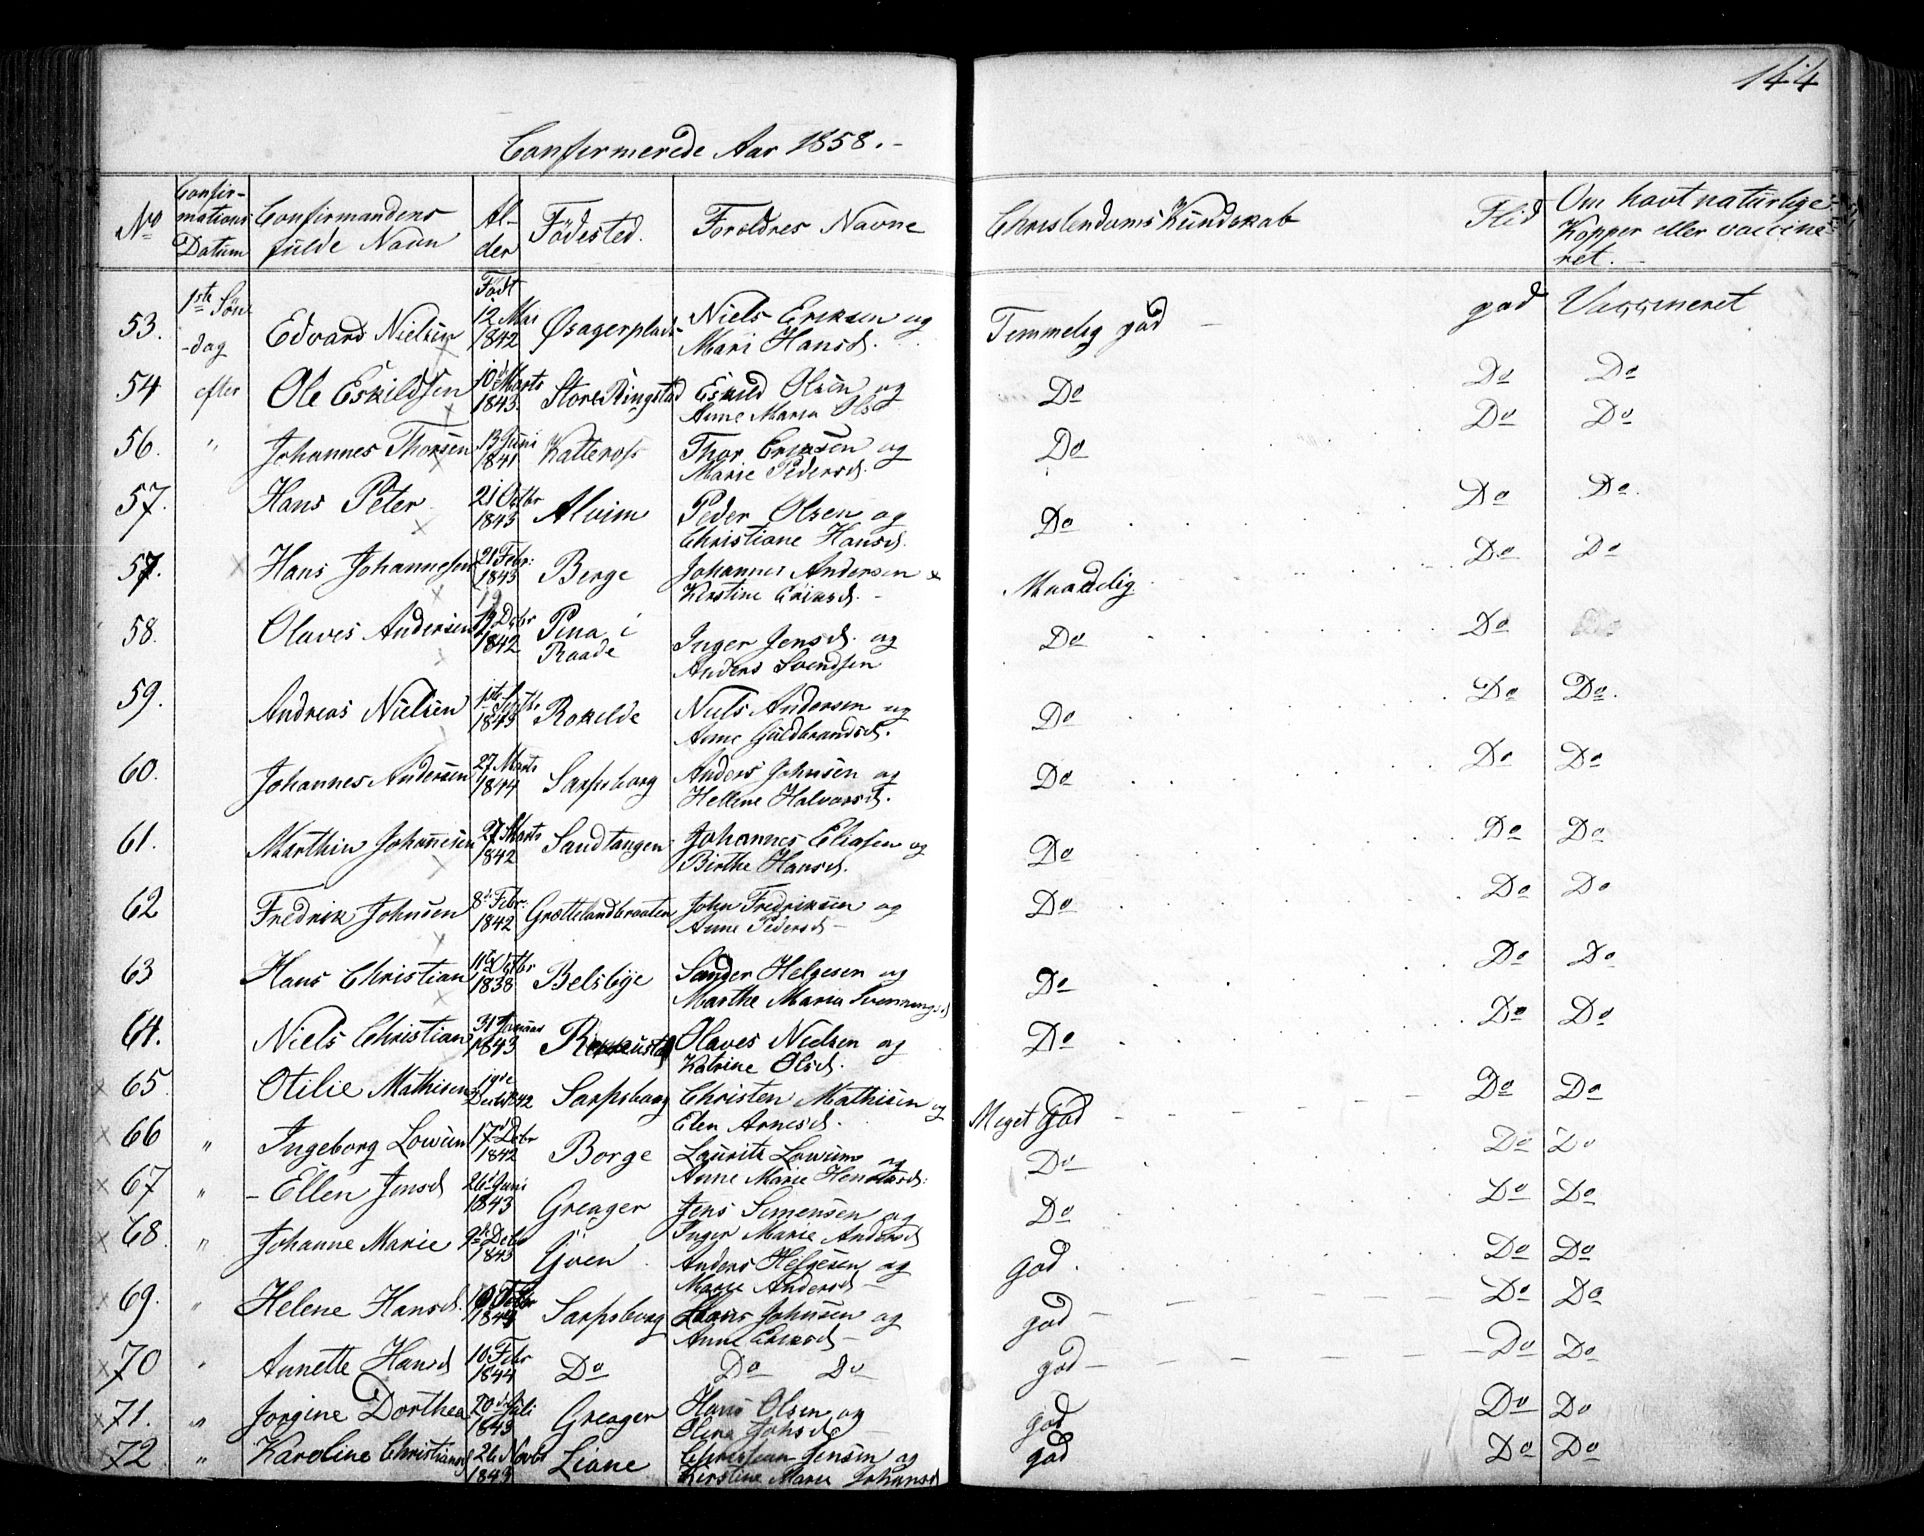 144
Confirmerede Aar 1858.-
No Confir-mations Datum Confirmandens fulde Navn Al-der Födested. Foreldres Navne Christendoms Kundskab Flid Om havt naturlige Kopper eller vaccineret.-
53. 1ste Søn-dag Edvard Nielsen Födt 12 Mai 1842 Øsagerplads Niels Eriksen og Mari Hansd. Temmelig god god Vaccineret
54 efter Ole Eskildsen 10 Marts 1843. Store Ringstad Eskild Olsen og Anne Maria Olsd Do Do Do
56. " Johannes Thorsen 13 Juni 1841 Katteross Thor Eriksen og Marie Pedersd. Do Do Do
57. Hans Peter 21 Octbr 1843 Alvim Peder Olsen og Christiane Hansd. Do Do Do.
57. Hans Johannesen 21 Febr: 1843 Berge Johannes Andersen & Kirstine Eriksd.- Maadelig Do Do
58. Olaves Andersen 19 Debr 1842 Pina i Raade Inger Jensd. og Anders Svendsen Do Do Do
59. Andreas Nielsen 1ste Septbr 1843 Rokelde Niels Andersen og Anne Guldbrandsd. Do Do Do.
60. Johannes Andersen 27 Marts 1844 Sarpsborg Anders Johnsen og Hellene Halvorsd. Do Do Do
61. Marthin Johannesen 27 Marts 1842 Sandtangen Johannes Eliasen og Birthe Hansd. Do Do Do
62 Fredrik Johnsen 8d Febr. 1842 Grøttelandbraaten John Fredriksen og Anne Pedersd- Do Do Do
63 Hans Christian 11te Octbr 1838 Belsbye Sander Helgesen og Marthe Maria Svenningsd Do Do Do
64. Niels Christian 31 Januar 1843 Olaves Nielsen og Katrine Olsd. Do Do Do
65 Otilie Mathisen 19de Decbr 1842 Sarpsborg Christen Mathisen og Elen Arnesd. Meget God Do Do
66 " Ingeborg Lowum 17 Debr 1842 Borge Laurits Lowum og Anne Marie Do Do Do
67 " - Ellen Jensd 26 Juni 1843 Greager Jens Simensen og Inger Marie Andersd Do Do Do
68 " Johanne Marie 9de Debr 1843 Göen Anders Helgesen og Marie Andersd- God. Do Do
69. " Helene Hansd. 10 Febr 1844 Sarpsborg Hans Johnsen og Anne Eriksd- god- Do Do
70 " Annette Hansd 10 Febr 1844 Do Do Do god- Do Do
71. " Jorgine Dorthea 20 Juli 1843 Greager Hans Olsen og Olena Johsd god Do Do
72 " Karoline Christiansd 26 Novbr 1843 Liane Christian Jensen og Kirstine Marie Johansd god Do Do